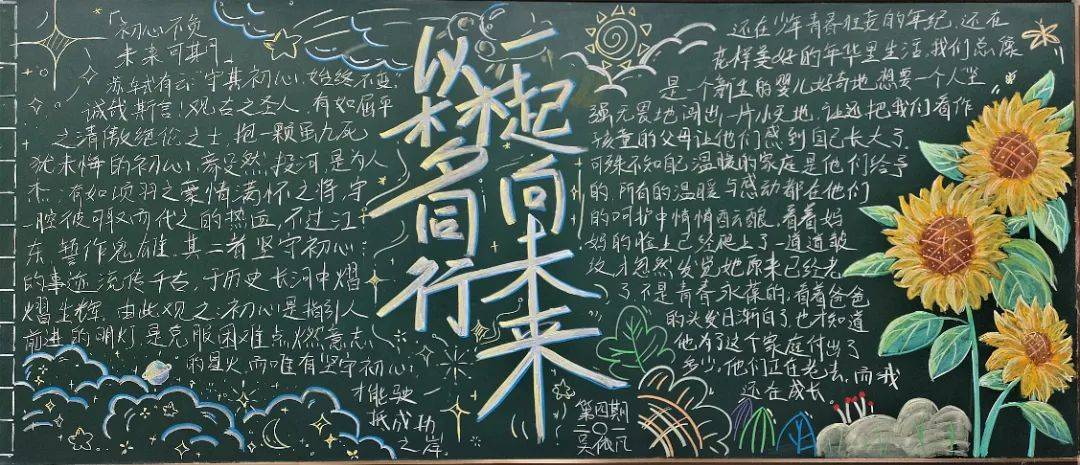 「初心不负
未来可期」
苏轼有云:守其初心,始终不变.
诚哉斯言!观古之圣人,有如屈平
之清傲绝伦之士,抱一颗虽九死
犹未悔的初心,然投河,是为人
杰;有如项羽之豪情满怀之将,守
一腔彼可取而代之的热血,不过江
东,誓作鬼雄.其二者坚守初心
的事迹流传千古,于历史长河中熠
熠生辉.由此观之,初心是指引人
前进的明灯,是克服困难点燃意志
的星火,而唯有坚守初心,
才能驶
抵成功
之岸.
以梦同行
一起向未来
还在少年青春狂妄的年纪,还在
花样美好的年华里生活,我们总像
是一个新生的婴儿好奇地想要一个人坚
强无畏地闯出一片小天地,让还把我们看作
孩童的父母让他们感到自己长大了.
可殊不知自己温暖的家庭是他们给予
的,所有的温暖与感动都在他们
的呵护中悄悄酝酿,看着妈
妈的脸上已经爬上了一道道皱
纹,才忽然发觉她原来已经老
了不是青春永葆的;看着爸爸
的头发日渐白了,也才知道
他为了这个家庭付出了
多少,他们正在老去,而我
还在成长
第四期
二〇一